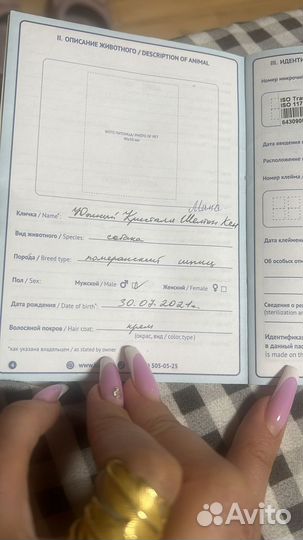 II. ОПИСАНИЕ ЖИВОТНОГО / DESCRIPTION OF ANIMAL
ФОТО ПИТОМЦА/ PHOTO OF PET
Мина
Кличка / Name*: Юлмий Кристалл Шелтон Кен
Вид животного / Species: собака
Порода / Breed type: померанский шпиц
Пол / Sex: Мужской / Male ♂ ☑ Женский / Female ♀ ☐
Дата рождения / Date of birth*: 30.07.2021г.
Волосяной покров / Hair coat: крем
(окрас, вид / color, type)
*как указана владельцем / as stated by owner
505-05-25
III. ИДЕНТИ
Номер микроч
ISO Tra
ISO 117
6430900
Дата введения
Расположение
Номер клейма
Дата клеймен
Об особых от
Сведения о ре
(sterilization an
Идентифика
в данный пас
is made on th
Avito